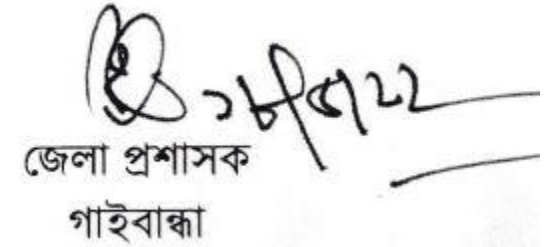 ১৮/৫/২২
জেলা প্রশাসক
গাইবান্ধা